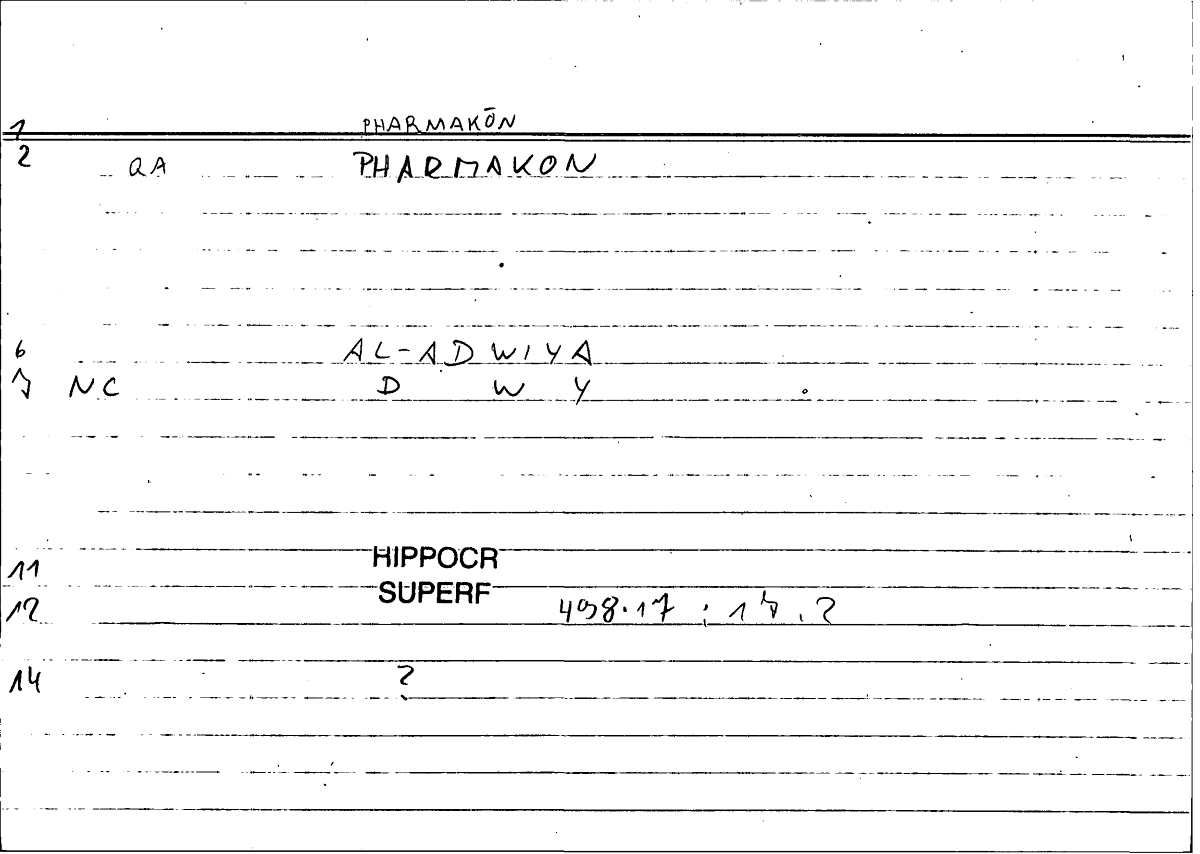 1 PHARMAKŌN
2 QA PHARMAKON
6 AL-ADWIYA
7 NC D W Y
11 HIPPOCR
SUPERF
12 498.17 ; 17.2
14 ?